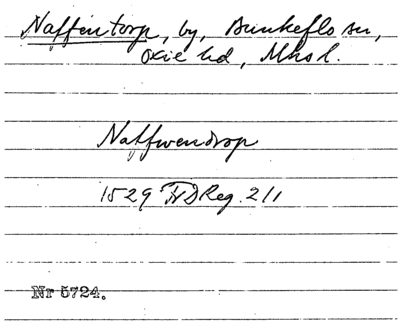 Naffentorp, by, Bunkeflo sn,
Oxie hd, Mhs l.
Natfwendrop
1529 FrDReg. 211
Nr 5724.